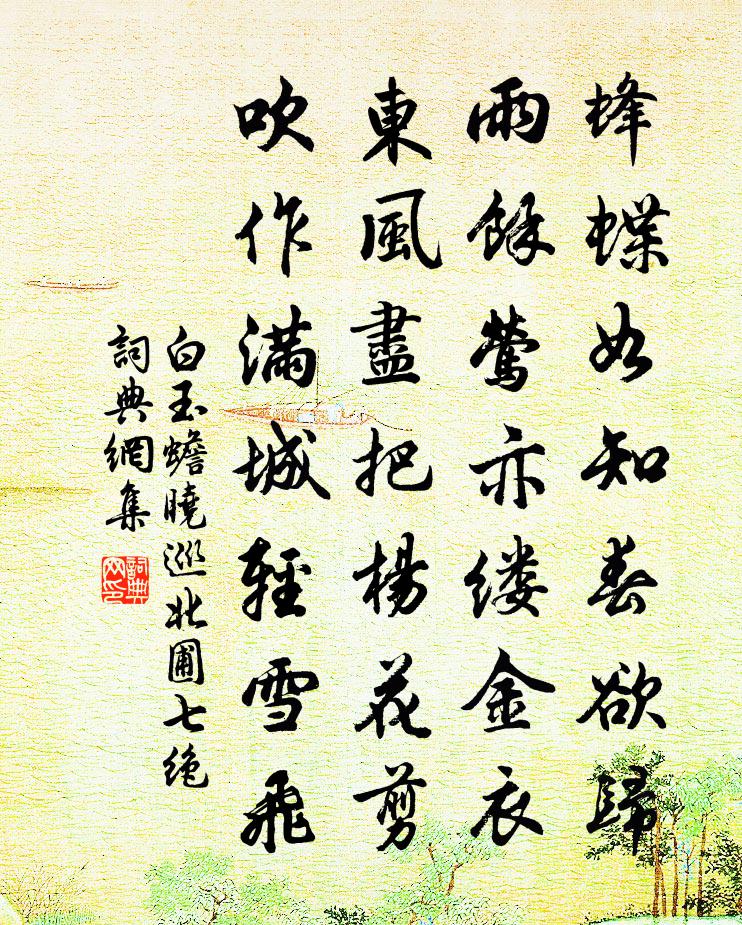 蜂蝶如知春欲歸
雨餘鶯亦縷金衣
東風盡把楊花剪
吹作滿城輕雪飛
白玉蟾曉巡北圃七絕
詞典網集
詞典网印